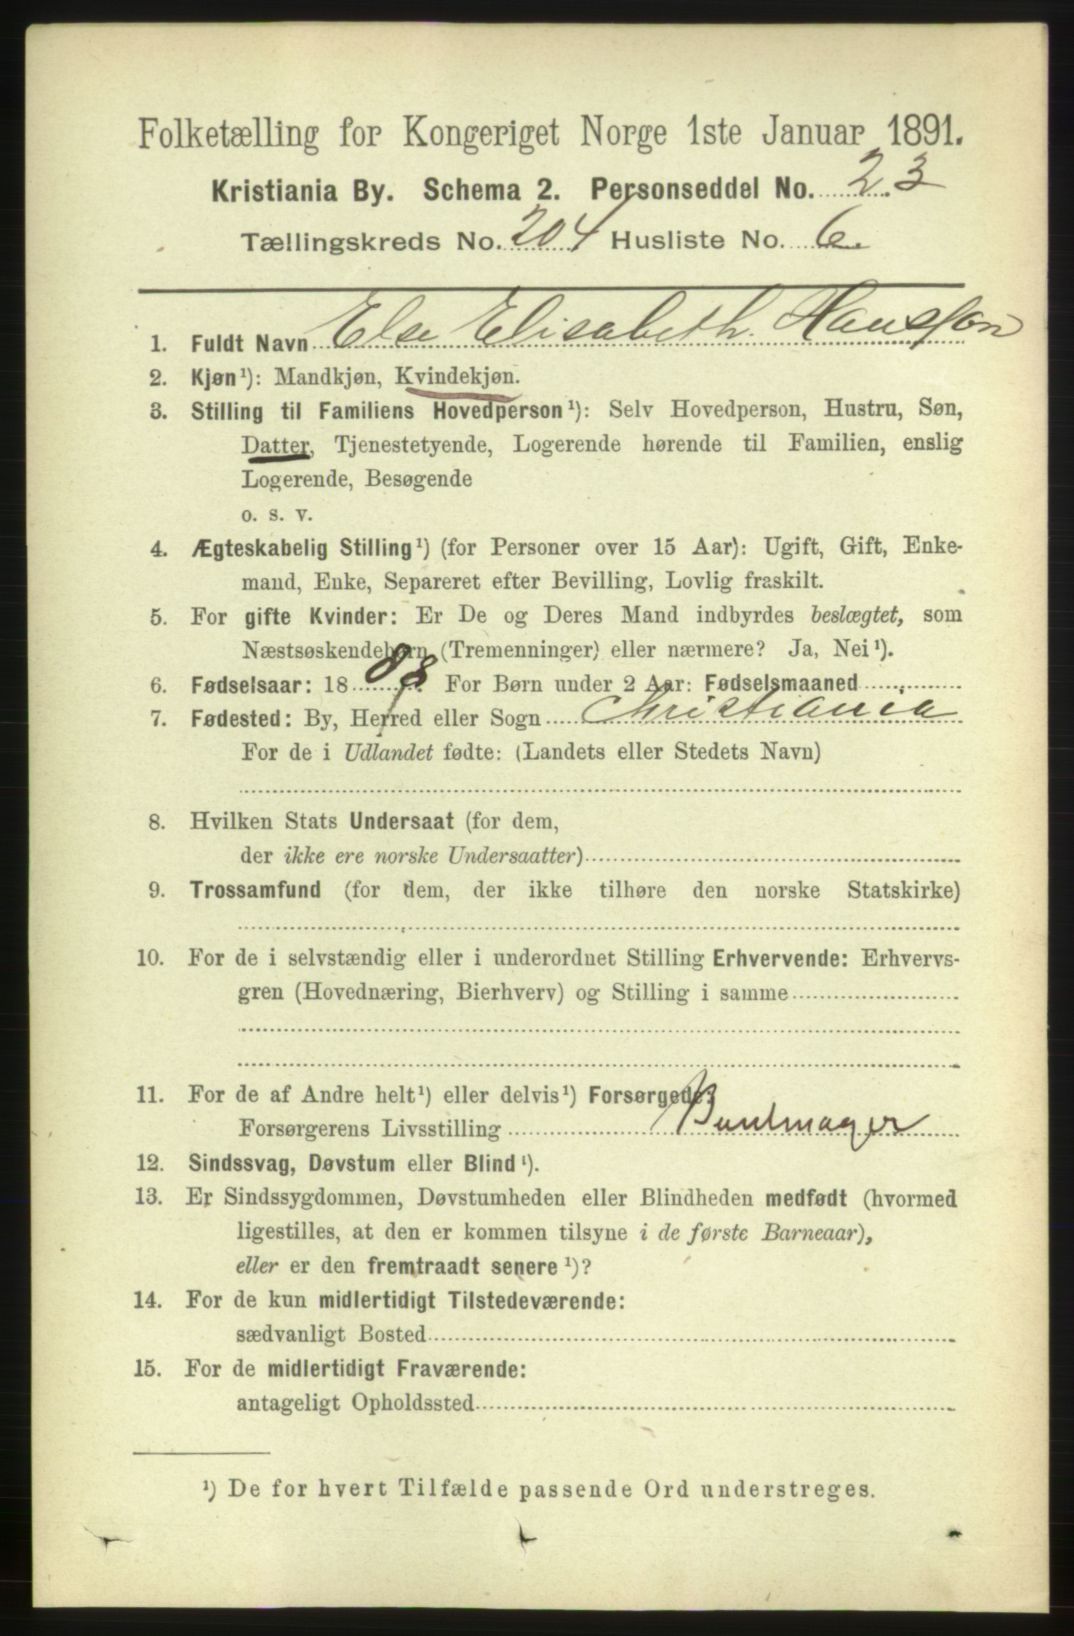 Folketælling for Kongeriget Norge 1ste Januar 1891.
Kristiania By. Schema 2. Personseddel No. 23
Tællingskreds No. 204 Husliste No. 6.
1. Fuldt Navn Else Elisabeth Hansson
2. Kjøn¹): Mandkjøn, Kvindekjøn.
3. Stilling til Familiens Hovedperson¹): Selv Hovedperson, Hustru, Søn,
Datter, Tjenestetyende, Logerende hørende til Familien, enslig
Logerende, Besøgende
o. s. v.
4. Ægteskabelig Stilling¹) (for Personer over 15 Aar): Ugift, Gift, Enke-
mand, Enke, Separeret efter Bevilling, Lovlig fraskilt.
5. For gifte Kvinder: Er De og Deres Mand indbyrdes beslægtet, som
Næstsøskendebørn (Tremenninger) eller nærmere? Ja, Nei¹).
6. Fødselsaar: 18 88. For Børn under 2 Aar: Fødselsmaaned
7. Fødested: By, Herred eller Sogn Christiania
For de i Udlandet fødte: (Landets eller Stedets Navn)
8. Hvilken Stats Undersaat (for dem,
der ikke ere norske Undersaatter)
9. Trossamfund (for dem, der ikke tilhøre den norske Statskirke)
10. For de i selvstændig eller i underordnet Stilling Erhvervende: Erhvervs-
gren (Hovednæring, Bierhverv) og Stilling i samme
11. For de af Andre helt¹) eller delvis¹) Forsørgede:
Forsørgerens Livsstilling Buntmager
12. Sindssvag, Døvstum eller Blind¹).
13. Er Sindssygdommen, Døvstumheden eller Blindheden medfødt (hvormed
ligestilles, at den er kommen tilsyne i de første Barneaar),
eller er den fremtraadt senere¹)?
14. For de kun midlertidigt Tilstedeværende:
sædvanligt Bosted
15. For de midlertidigt Fraværende:
antageligt Opholdssted
¹) De for hvert Tilfælde passende Ord understreges.